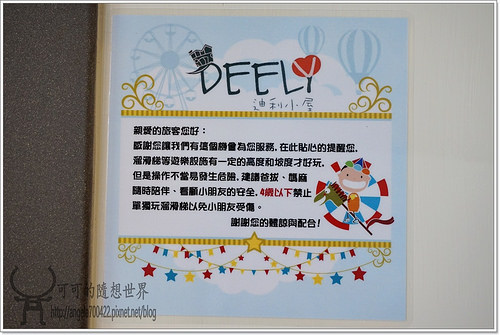 DEELY
迪利小屋
親愛的旅客您好：
感謝您讓我們有這個機會為您服務，在此貼心的提醒您，
溜滑梯等遊樂設施有一定的高度和坡度才好玩，
但是操作不當易發生危險，建議爸拔、媽麻
隨時陪伴、看顧小朋友的安全，4歲以下禁止
單獨玩溜滑梯以免小朋友受傷。
謝謝您的體諒與配合！
可可的隨想世界
http://angela700422.pixnet.net/blog